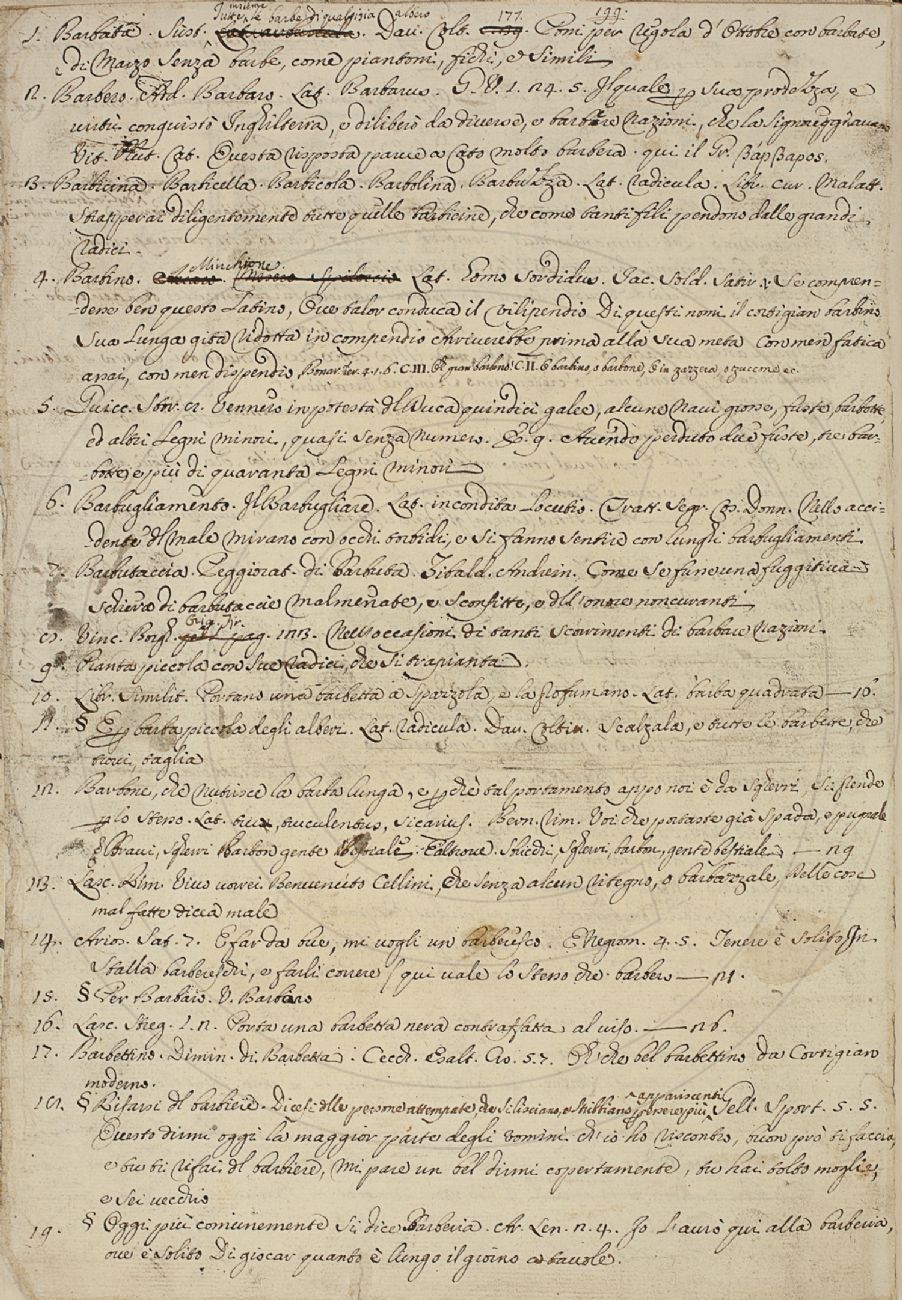 insieme
Tutte le barbe di qualsisia albero
1. Barbata. Sust. Dav. Colt. 177. 199. Poni per regola d'Ottobre con barbate,
e di Marzo senza barbe, come piantoni, fichi, e simili
2. Barbero. Add. Barbaro. Lat. Barbarus. G. V. 1. 24. 5. Il quale p sua prodezza, e
virtù conquistò Inghilterra, e diliberò da diverse, e barbere nazioni, che la signoreggiavano
Vit. Plut. Cat. Questa risposta parve a Cato molto barbera. qui il Gr. βαρβαρος.
3. Barbicina. Barbicella. Barbicola. Barbolina. Barbuzza. Lat. radicula. Libr. cur. Malatt.
Strapperai diligentemente tutte quelle barbicine, che come tanti fili pendono dalle grandi
radici.
4. Barbino. Minchione. Lat. homo sordidus. Jac. Sold. Satir. Se compren-
dene ben questo Latino, Ove talor conduca il vilipendio Di questi nomi il cortigian barbino
Sua lunga gita ridotta in compendio Arriverebbe prima alla sua meta Con men fatica
assai, con men dispendio. Bonar. Fier. 4. 1. 6. C. III. Oh gran barbino! C. II. O barbino, o barbone, o in zazzera, o zuccone ec.
5. Guicc. Stor. Vennero in potestà dl Duca quindici galee, alcune Navi grosse, fuste, barbotte,
ed altri Legni minori, quasi senza numero. E. 9. Avendo perduto due fuste, tre bar-
botte e più di quaranta Legni minori
6. Barbugliamento. Il Barbugliare. Lat. incondita locutio. Tratt. Segr. Cos. Donn. Nello acci-
dente dl male mirano con occhi torbidi, e si fanno sentire con lunghi barbugliamenti.
7. Barbutaccia. Peggiorat. di Barbuta. Tibald. Andrein. Come se fune una fuggitiva
schiera di barbutaccie malmenate, e sconfitte, e dll'onore noncuranti
8. Vinc. Borgh. Orig. Fir. 123. Nell'occasioni di tanti scorrimenti di barbare nazioni.
9. Pianta piccola con sue radici, che si trapianta.
10. Libr. Similit. Portano una barbetta a spazzola, e la profumano. Lat. barba quadrata — 16.
11. § E p barba piccola degli alberi. Lat. radicula. Dav. Coltiv. Scalzala, e tutte le barbette, che
trovi, taglia
12. Barbone, che nutrisce la barba lunga, e pchè tal portamento appo noi è da sgherri, si stende
p lo stesso. Lat. trux, truculentus, sicarius. Bern. Rim. Voi che portaste già spada, e pugnale
Bravi, sgherri barbon gente bestiale. E altrove. Sbricchi, sgherri, barbon, gente bestiale — 29
13. Lasc. Rim. Vivo vorrei Benvenuto Cellini, Che senza alcun ritegno, o barbazzale, Delle cose
mal fatte dicea male
14. Arios. Sat. 7. E far da bue, mi vogli un barberesco. E Negrom. 4. 5. Tenere è solito In
stalla barbereschi, e farli correre (qui vale lo stesso che barbero — 21.
15. § Per Barbaro. V. Barbaro
16. Lasc. Streg. 1. 2. Porta una barbetta nera contraffatta al viso. — 26.
17. Barbettino. Dimin. di Barbetta. Cecch. Esalt. Cro. 5. 7. Oh che bel barbettino da Cortigian
moderno.
18. § Rifarsi dl barbiere. Dicesi dlle persone attempate, che si lisciano, e strebbiano p parere più appariscenti Gell. Sport. 5. 5.
Questo dirmi oggi la maggior parte degli uomini ch'io ho riscontro, buon prò ti faccia,
e tu ti rifai dl barbiere, mi pare un bel dirmi copertamente, tu hai tolto moglie,
e sei vecchio
19. § Oggi più comunemente si dice Barberia. Ar. Len. 2. 4. Io l'avrò qui alla barberia,
ove è solito Di giocar quanto è lungo il giorno a tavole.